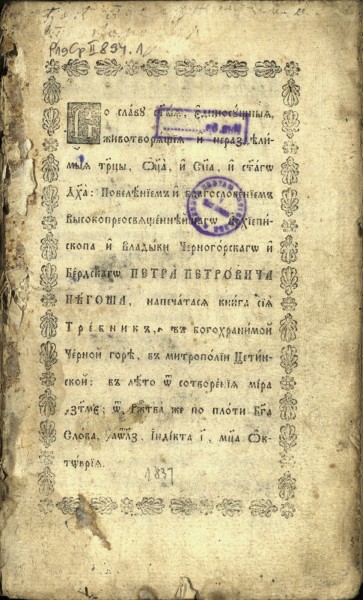 РлдСр II 894.1
Во славу ст҃ыѧ, є҆диносꙋ́щныѧ,
животворѧ́щїѧ и҆ нераздѣли́-
мыѧ трⷪ҇цы, Ѻ҆ц҃а̀, и҆ Сн҃а, и҆ ст҃а́гѡ
Дх҃а: Повелѣ́нїемъ и҆ благослове́нїемъ
Высокопреосвѧщеннѣйшагѡ
скопа и҆ Влады́ки Черного́рскагѡ и҆
Бе́рдскагѡ ПЕТРА̀ ПЕТРО́ВИЧА
НѢ́ГОША, напеча́тасѧ книга сїѧ̀
Тре́бникъ, въ богохрани́мой
Че́рной горѣ̀, въ митропо́лїи Цети́н-
ской: въ лѣ́то ѿ сотворе́нїѧ мі́ра
҂зтм҃є; ѿ Рж҇тва̀ же по пло́ти Бг҃а
Сло́ва, ҂аѡл҃з. І҆ндїкта і҃, мц҇а Ѻ҆к-
тѡ́врїѧ.
1837